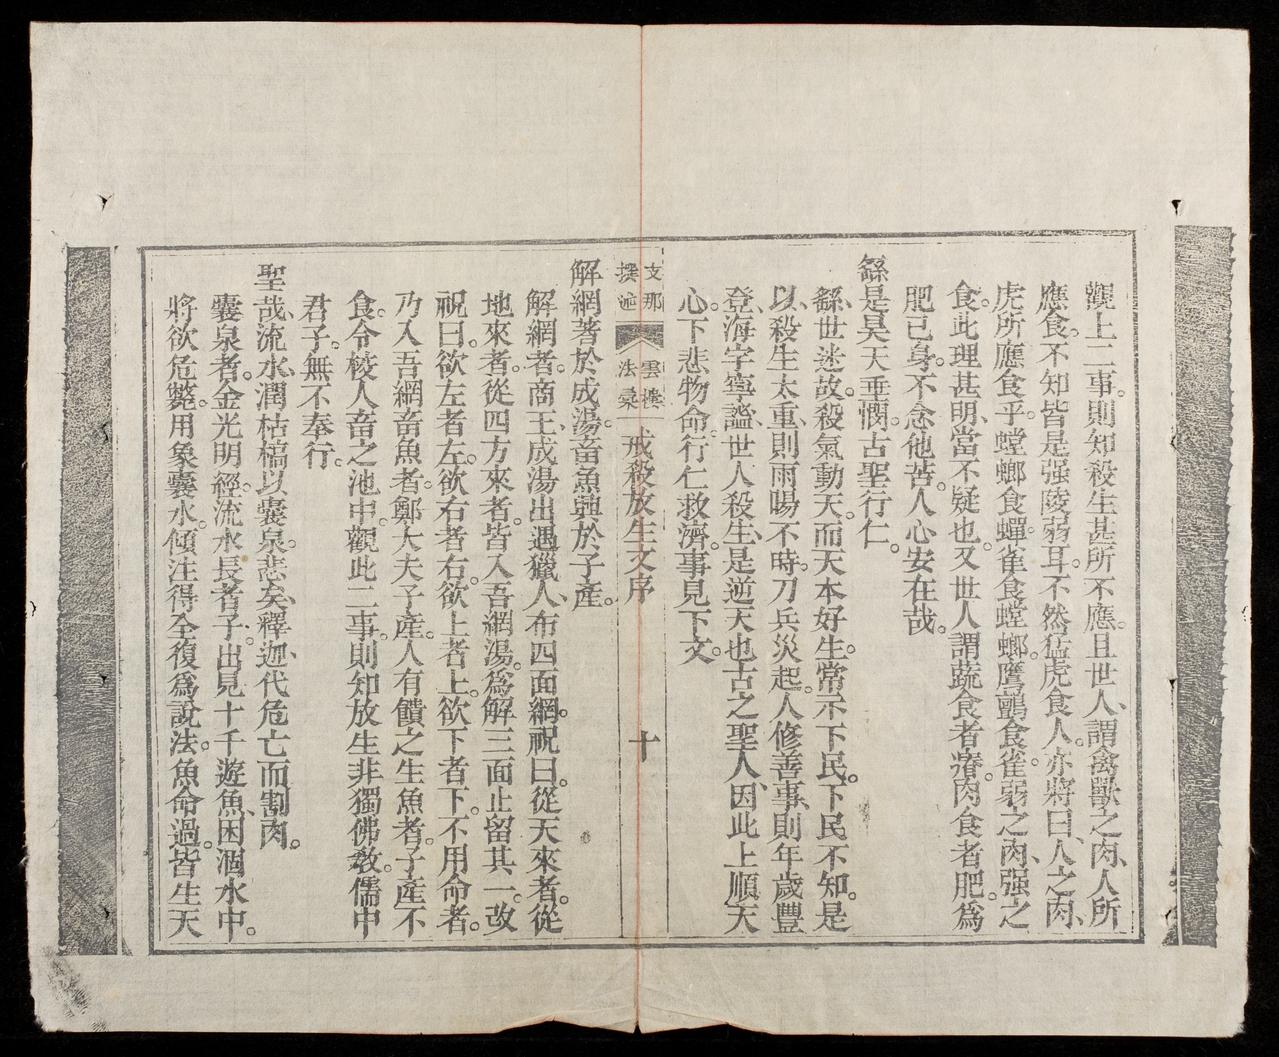 觀上二事。則知殺生甚所不應。且世人、謂禽獸之肉、人所
應食。不知皆是强陵弱耳。不然猛虎食人。亦將曰、人之肉、
虎所應食乎。螳螂食蟬。雀食螳螂。鷹鸇食雀。弱之肉、强之
食。此理甚明、當不疑也。又世人謂蔬食者瘠。肉食者肥。爲
肥己身。不念他苦。人心安在哉。
繇是昊天垂憫。古聖行仁。
繇、世迷故。殺氣動天。而天本好生。常示下民。下民不知。是
以、殺生太重、則雨暘不時。刀兵災起。人修善事、則年歲豐
登、海宇寧謐、世人殺生、是逆天也。古之聖人、因此上順天
心。下悲物命。行仁救濟。事見下文。
支那
撰述
雲棲
法彙
戒殺放生文序
十
解網著於成湯。畜魚興於子產。
解網者。商王、成湯出遇獵人、布四面網。祝曰。從天來者。從
地來者。從四方來者。皆入吾網。湯爲解三面。止留其一。改
祝曰。欲左者左。欲右者右。欲上者上。欲下者下。不用命者。
乃入吾網。畜魚者。鄭大夫子產。人有饋之生魚者。子產不
食。令校人畜之池中。觀此二事。則知放生非獨佛教。儒中
君子。無不奉行。
聖哉流水、潤枯槁以囊泉。悲矣釋、迦代危亡而割肉。
囊泉者。金光明經。流水長者子。出見十千遊魚。困涸水中。
將欲危斃。用象囊水。傾注得全。復爲說法。魚命過。皆生天